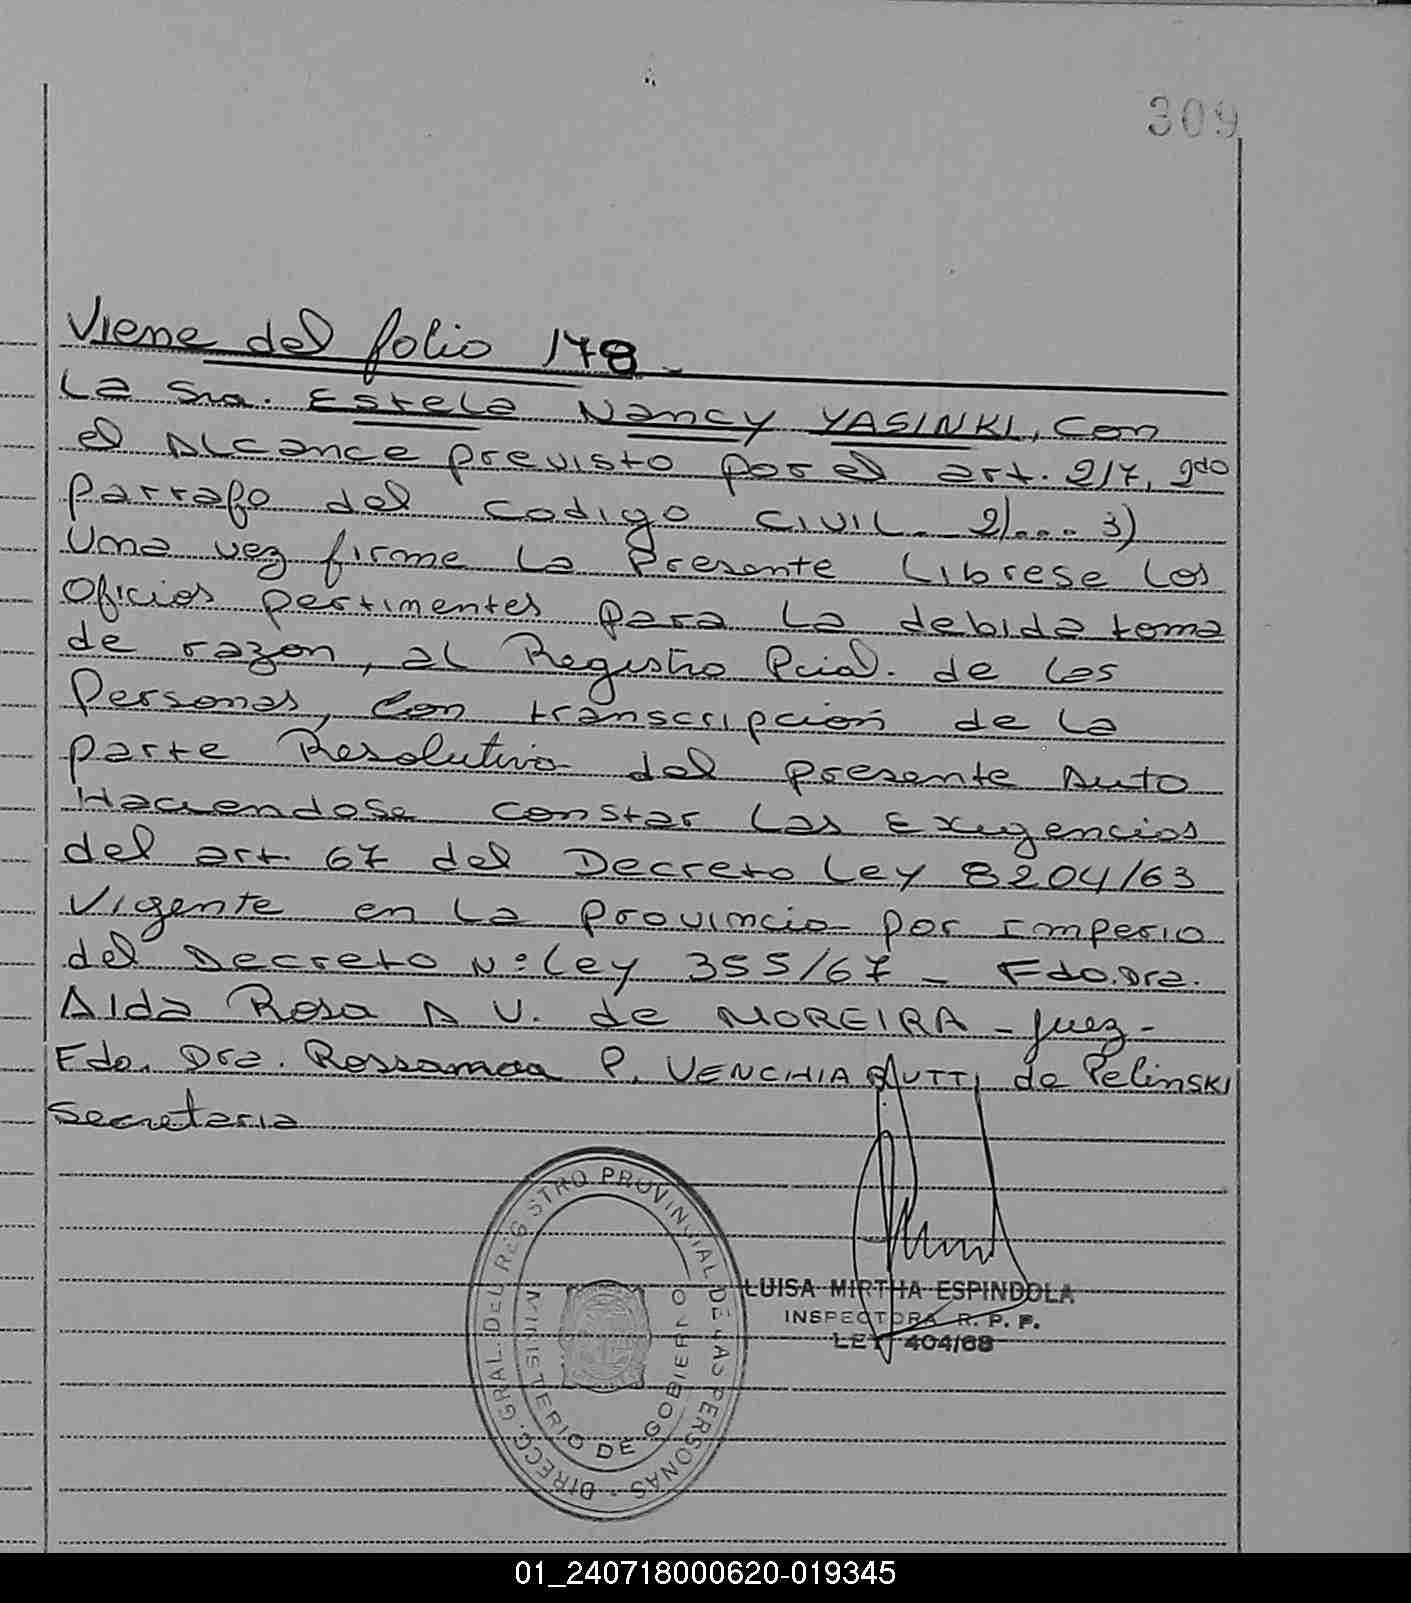 309
Viene del folio 178.-
La Sra. Estela Nancy YASINKI, con
el Alcance previsto por el art. 217, 2do
parrafo del codigo civil. 2)... 3)
Una vez firme la Presente Librese los
Oficios pertinentes para la debida toma
de razon, al Registro Pcial. de las
Personas, con transcripcion de la
parte Resolutiva del presente Auto
Haciendose constar las Exigencias
del art. 67 del Decreto Ley 8204/63
Vigente en la provincia por imperio
del Decreto N° Ley 355/67 - Fdo. Dra.
Aida Rosa A V. de MOREIRA - Juez -
Fdo. Dra. Rossanna P. VENCHIARUTTI de Pelinski
Secretaria
DIRECC. GRAL. DEL REGISTRO PROVINCIAL DE LAS PERSONAS -
MINISTERIO DE GOBIERNO
LUISA MIRTHA ESPINDOLA
INSPECTORA R. P. P.
LEY 404/68
01_240718000620-019345